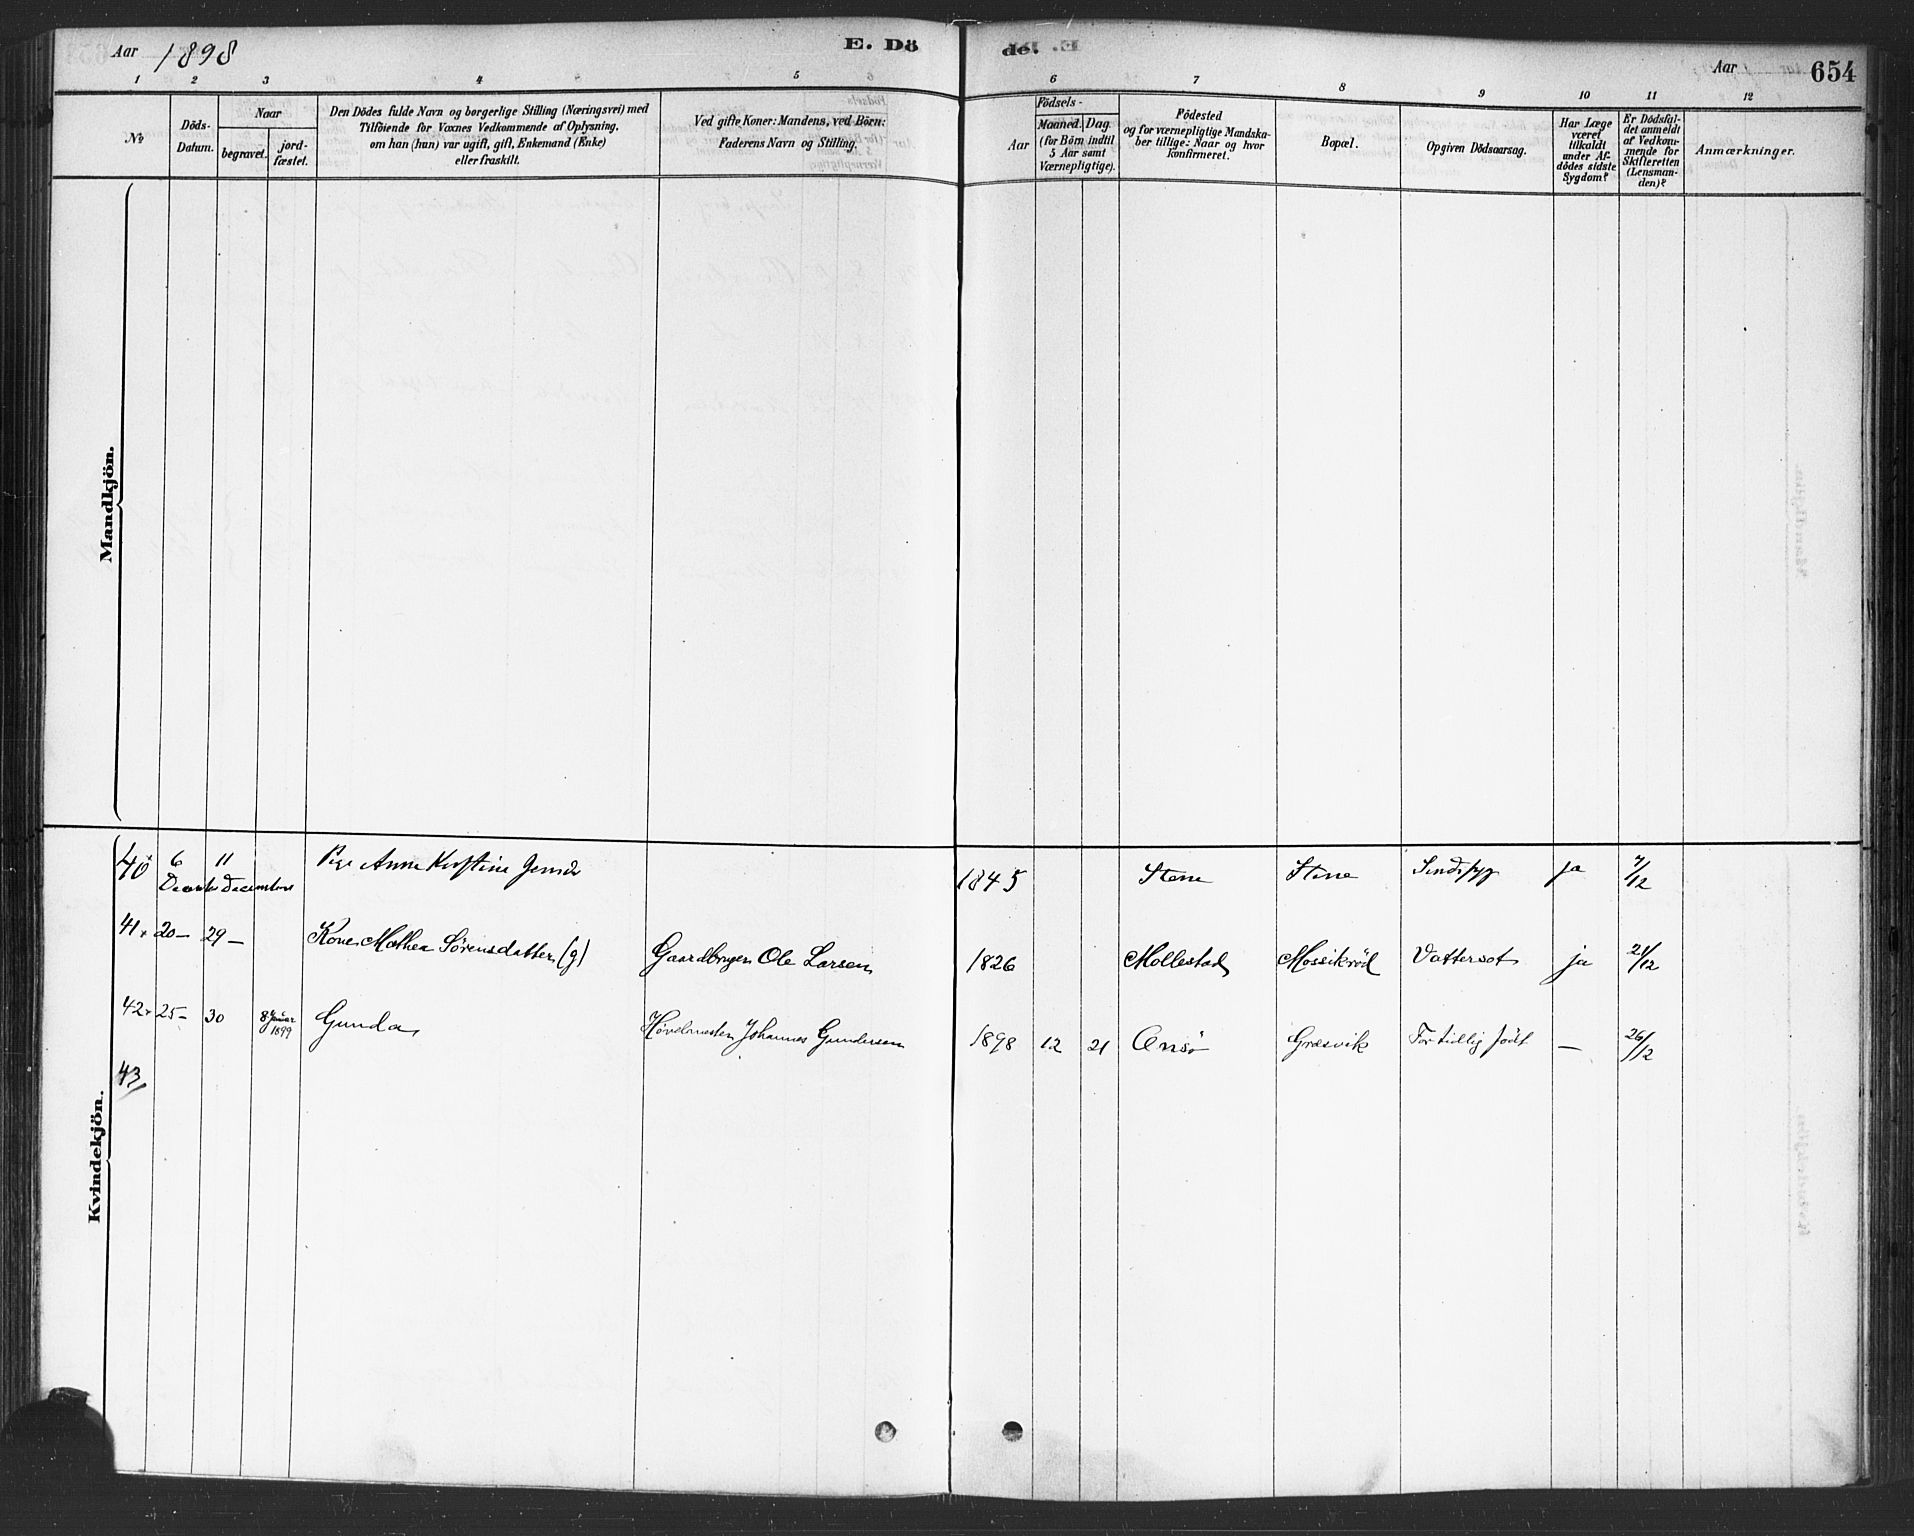 Aar 1898
E. Dö
de.
Aar
654
1 2 3 4 5 6 7 8 9 10 11 12
No
Döds-
Datum.
Naar
begravet.
jord-
fæstet.
Den Dödes fulde Navn og borgerlige Stilling (Næringsvei) med
Tilföiende for Voxnes Vedkommende af Oplysning,
om han (hun) var ugift, gift, Enkemand (Enke)
eller fraskilt.
Ved gifte Koner: Mandens, ved Börn:
Faderens Navn og Stilling.
Födsels-
Aar
Maaned.
Dag
(for Börn indtil
5 Aar samt
Værnepligtige).
Födested
og for værnepligtige Mandska-
ber tillige: Naar og hvor
konfirmeret.
Bopæl.
Opgiven Dödsaarsag.
Har Læge
været
tilkaldt
under Af-
dödes sidste
Sygdom?
Er Dödsfal-
det anmeldt
af Vedkom-
mende for
Skifteretten
(Lensman-
den)?
Anmærkninger.
Mandkjön.
Kvindekjön.
40 6 11 Pige Anne Kirstine 1845 Stene Stene Sindssyg ja 7/12
Decemb December
41 20 – 29 – Kone Mathea Sörensdatter (g) Gaardbruger Ole Larsen 1826 Mollestad Mossikröd Vattersot ja 21/12
42 25 – 30 8 Januar 1899 Gunda Johannes Gundersen 1898 12 21 Onsö Græsvik For tidlig födt — 26/12
43